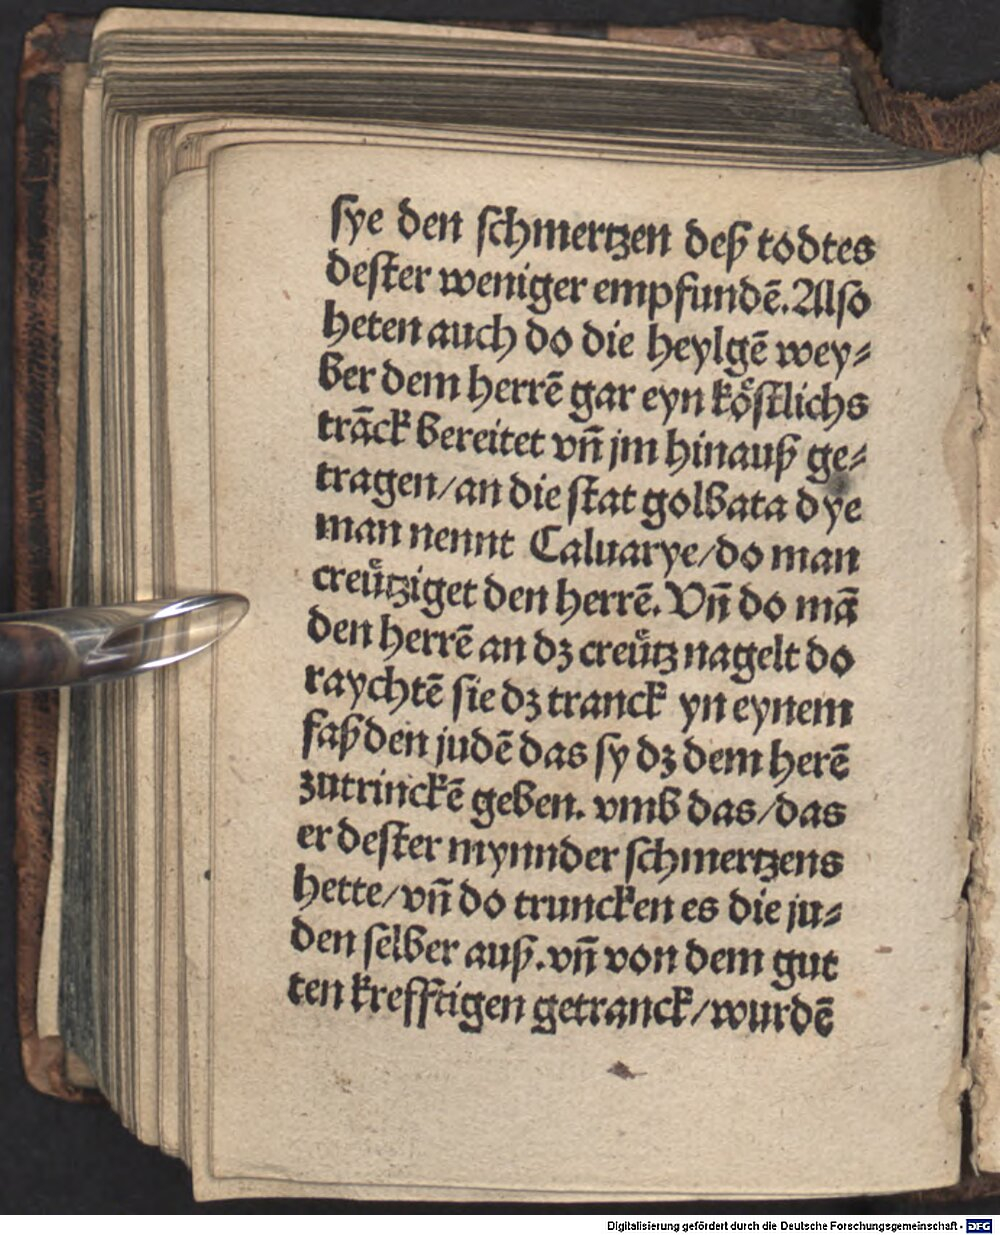 sye den schmertzen deß todtes
dester weniger empfundē. Also
heten auch do die heylgē wey⸗
ber dem herrē gar eyn koͤstlichs
trāck bereitet vn̄ jm hinauß ge⸗
tragen/an die stat golbata dye
man nennt Caluarye/do man
creuͤtziget den herrē. Vn̄ do mā
den herrē an dz creuͤtz nagelt do
raychtē sie dz tranck yn eynem
faß den judē das sy dz dem herē
zutrinckē geben. vmb das/das
er dester mynnder schmertzens
hette/vn̄ do truncken es die ju⸗
den selber auß.vn̄ von dem gut
ten krefftigen getranck/wurdē
Digitalisierung gefördert durch die Deutsche Forschungsgemeinschaft - DFG